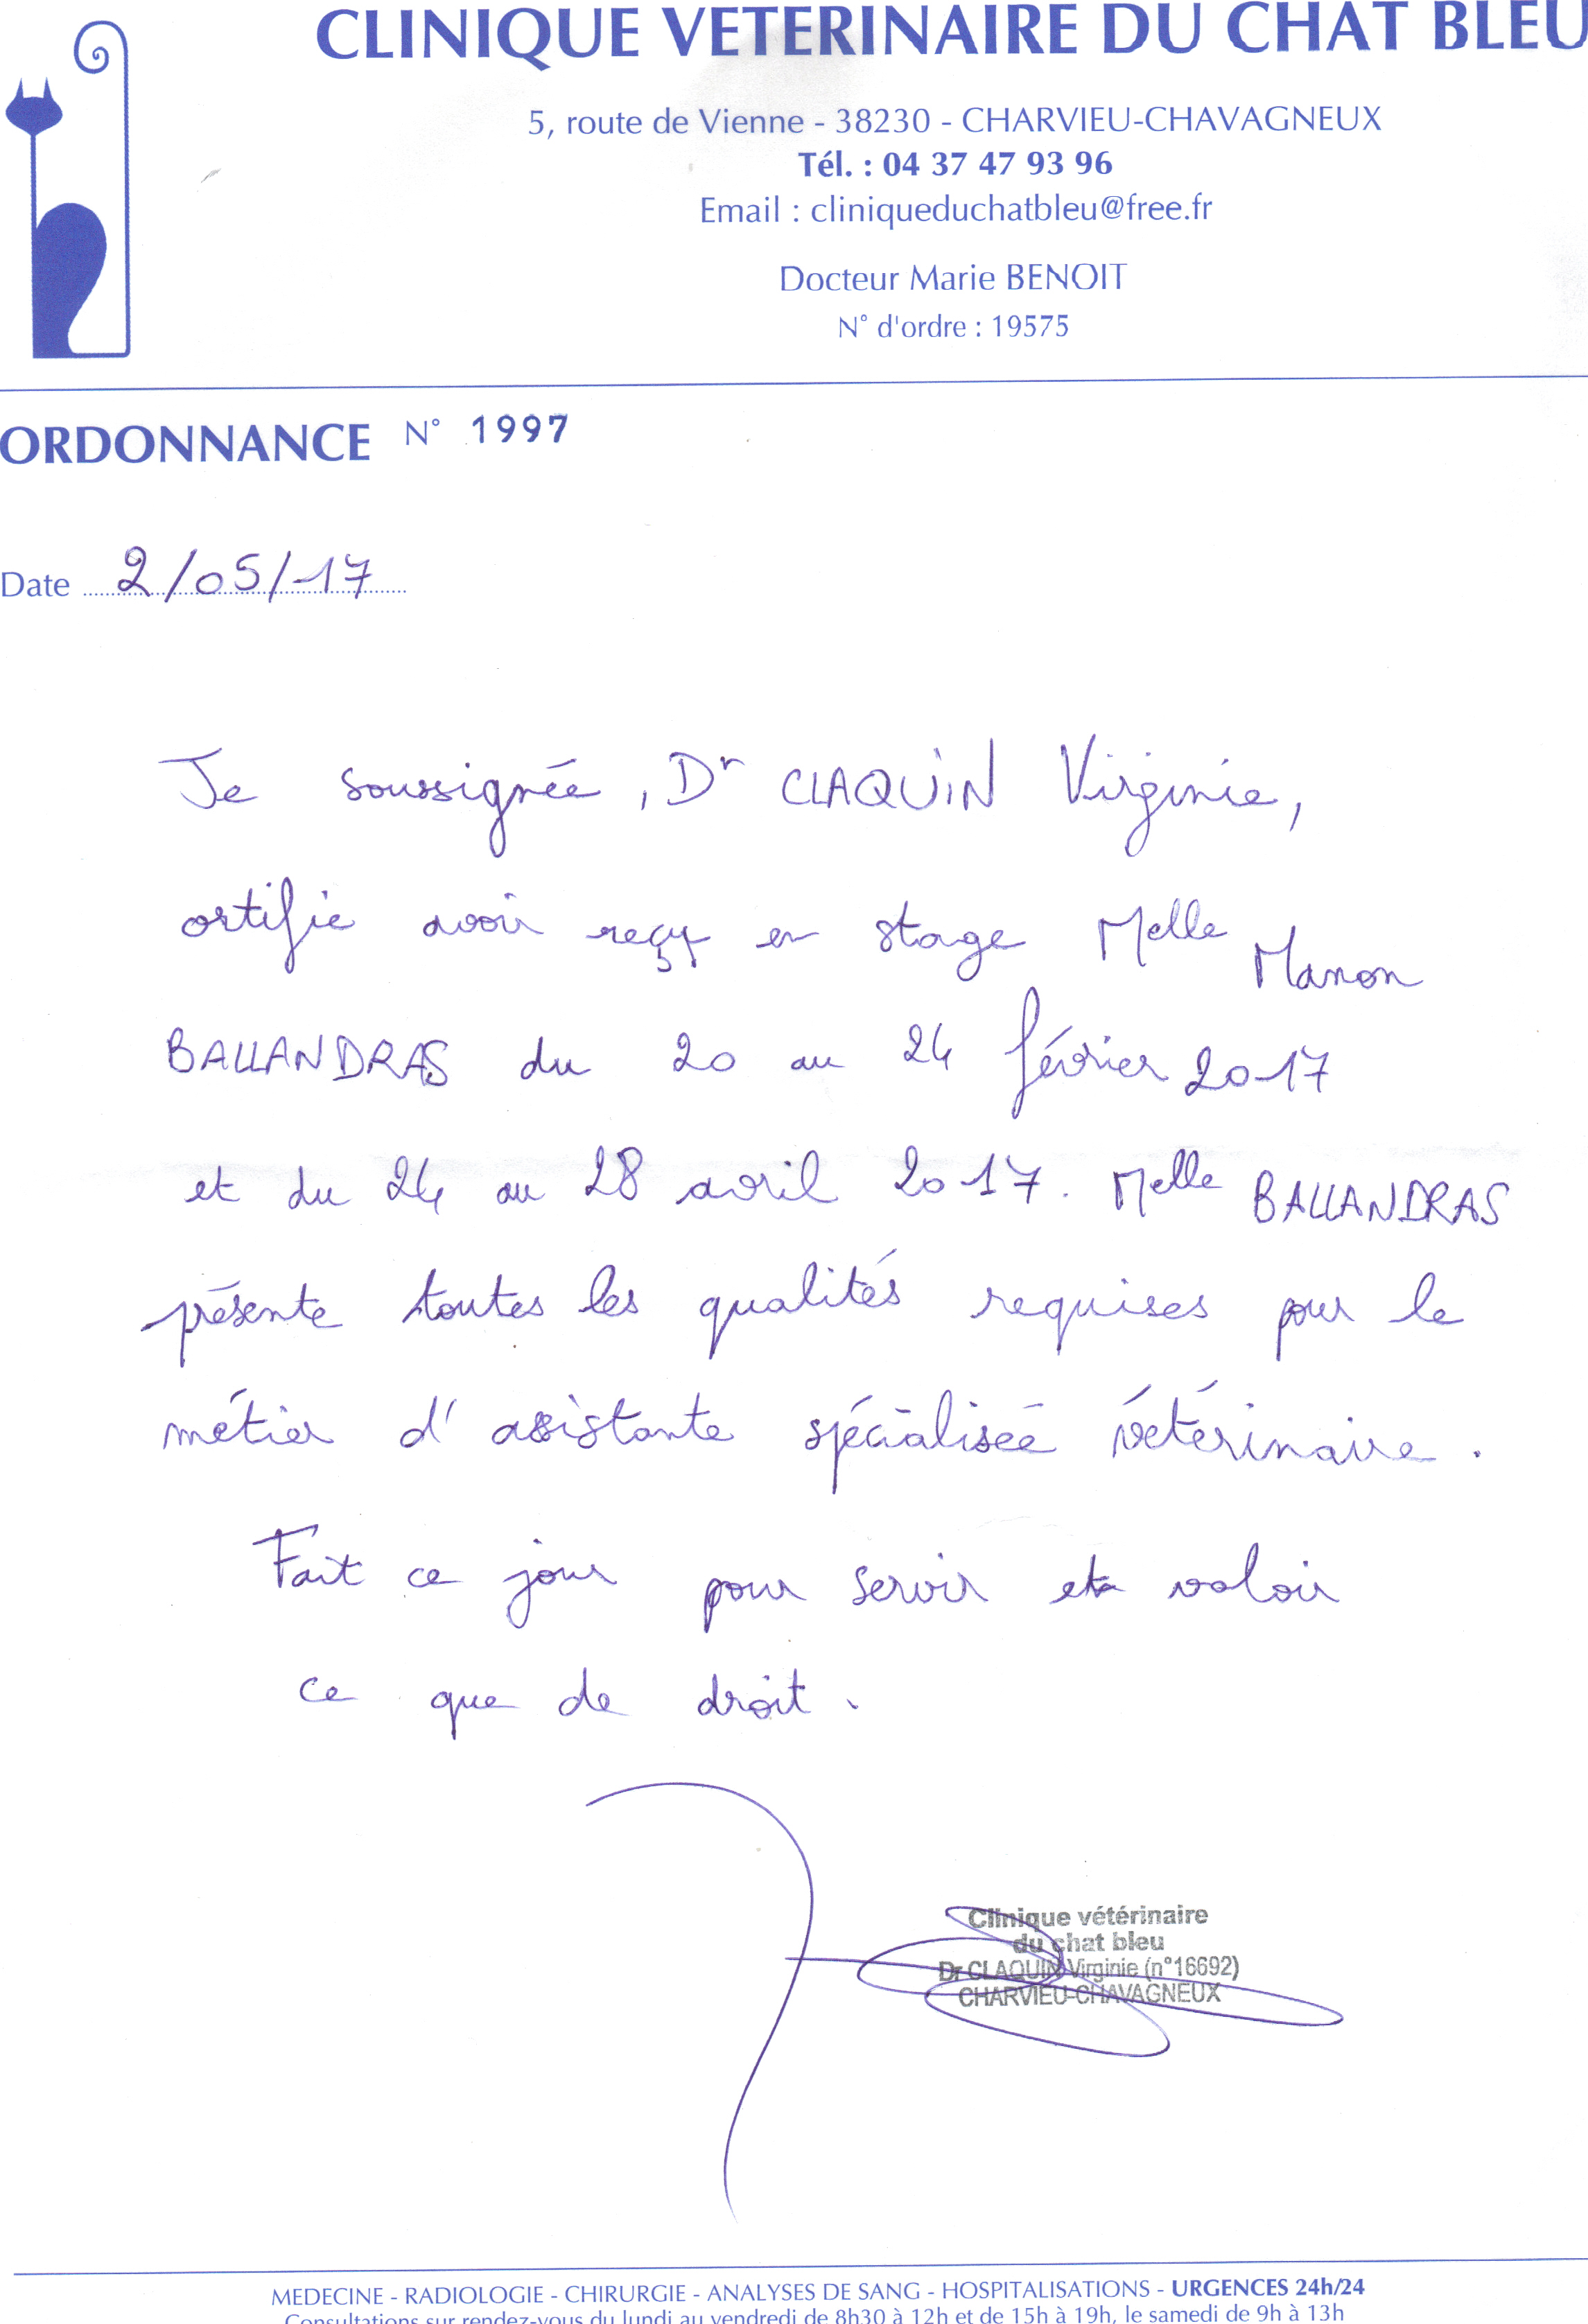 CLINIQUE VETERINAIRE DU CHAT BLEU
5, route de Vienne - 38230 - CHARVIEU-CHAVAGNEUX
Tél. : 04 37 47 93 96
Email : cliniqueduchatbleu@free.fr
Docteur Marie BENOIT
N° d'ordre : 19575
ORDONNANCE N° 1997
Date 2/05/17
Je soussignée, Dr CLAQUIN Virginie,
certifie avoir reçu en stage Melle Manon
BALLANDRAS du 20 au 24 février 2017
et du 24 au 28 avril 2017. Melle BALLANDRAS
présente toutes les qualités requises pour le
métier d'assistante spécialisée vétérinaire.
Fait ce jour pour servir et valoir
ce que de droit.
Clinique vétérinaire
du chat bleu
Dr CLAQUIN Virginie (n°16692)
CHARVIEU-CHAVAGNEUX
MEDECINE - RADIOLOGIE - CHIRURGIE - ANALYSES DE SANG - HOSPITALISATIONS - URGENCES 24h/24
Consultations sur rendez-vous du lundi au vendredi de 8h30 à 12h et de 15h à 19h, le samedi de 9h à 13h